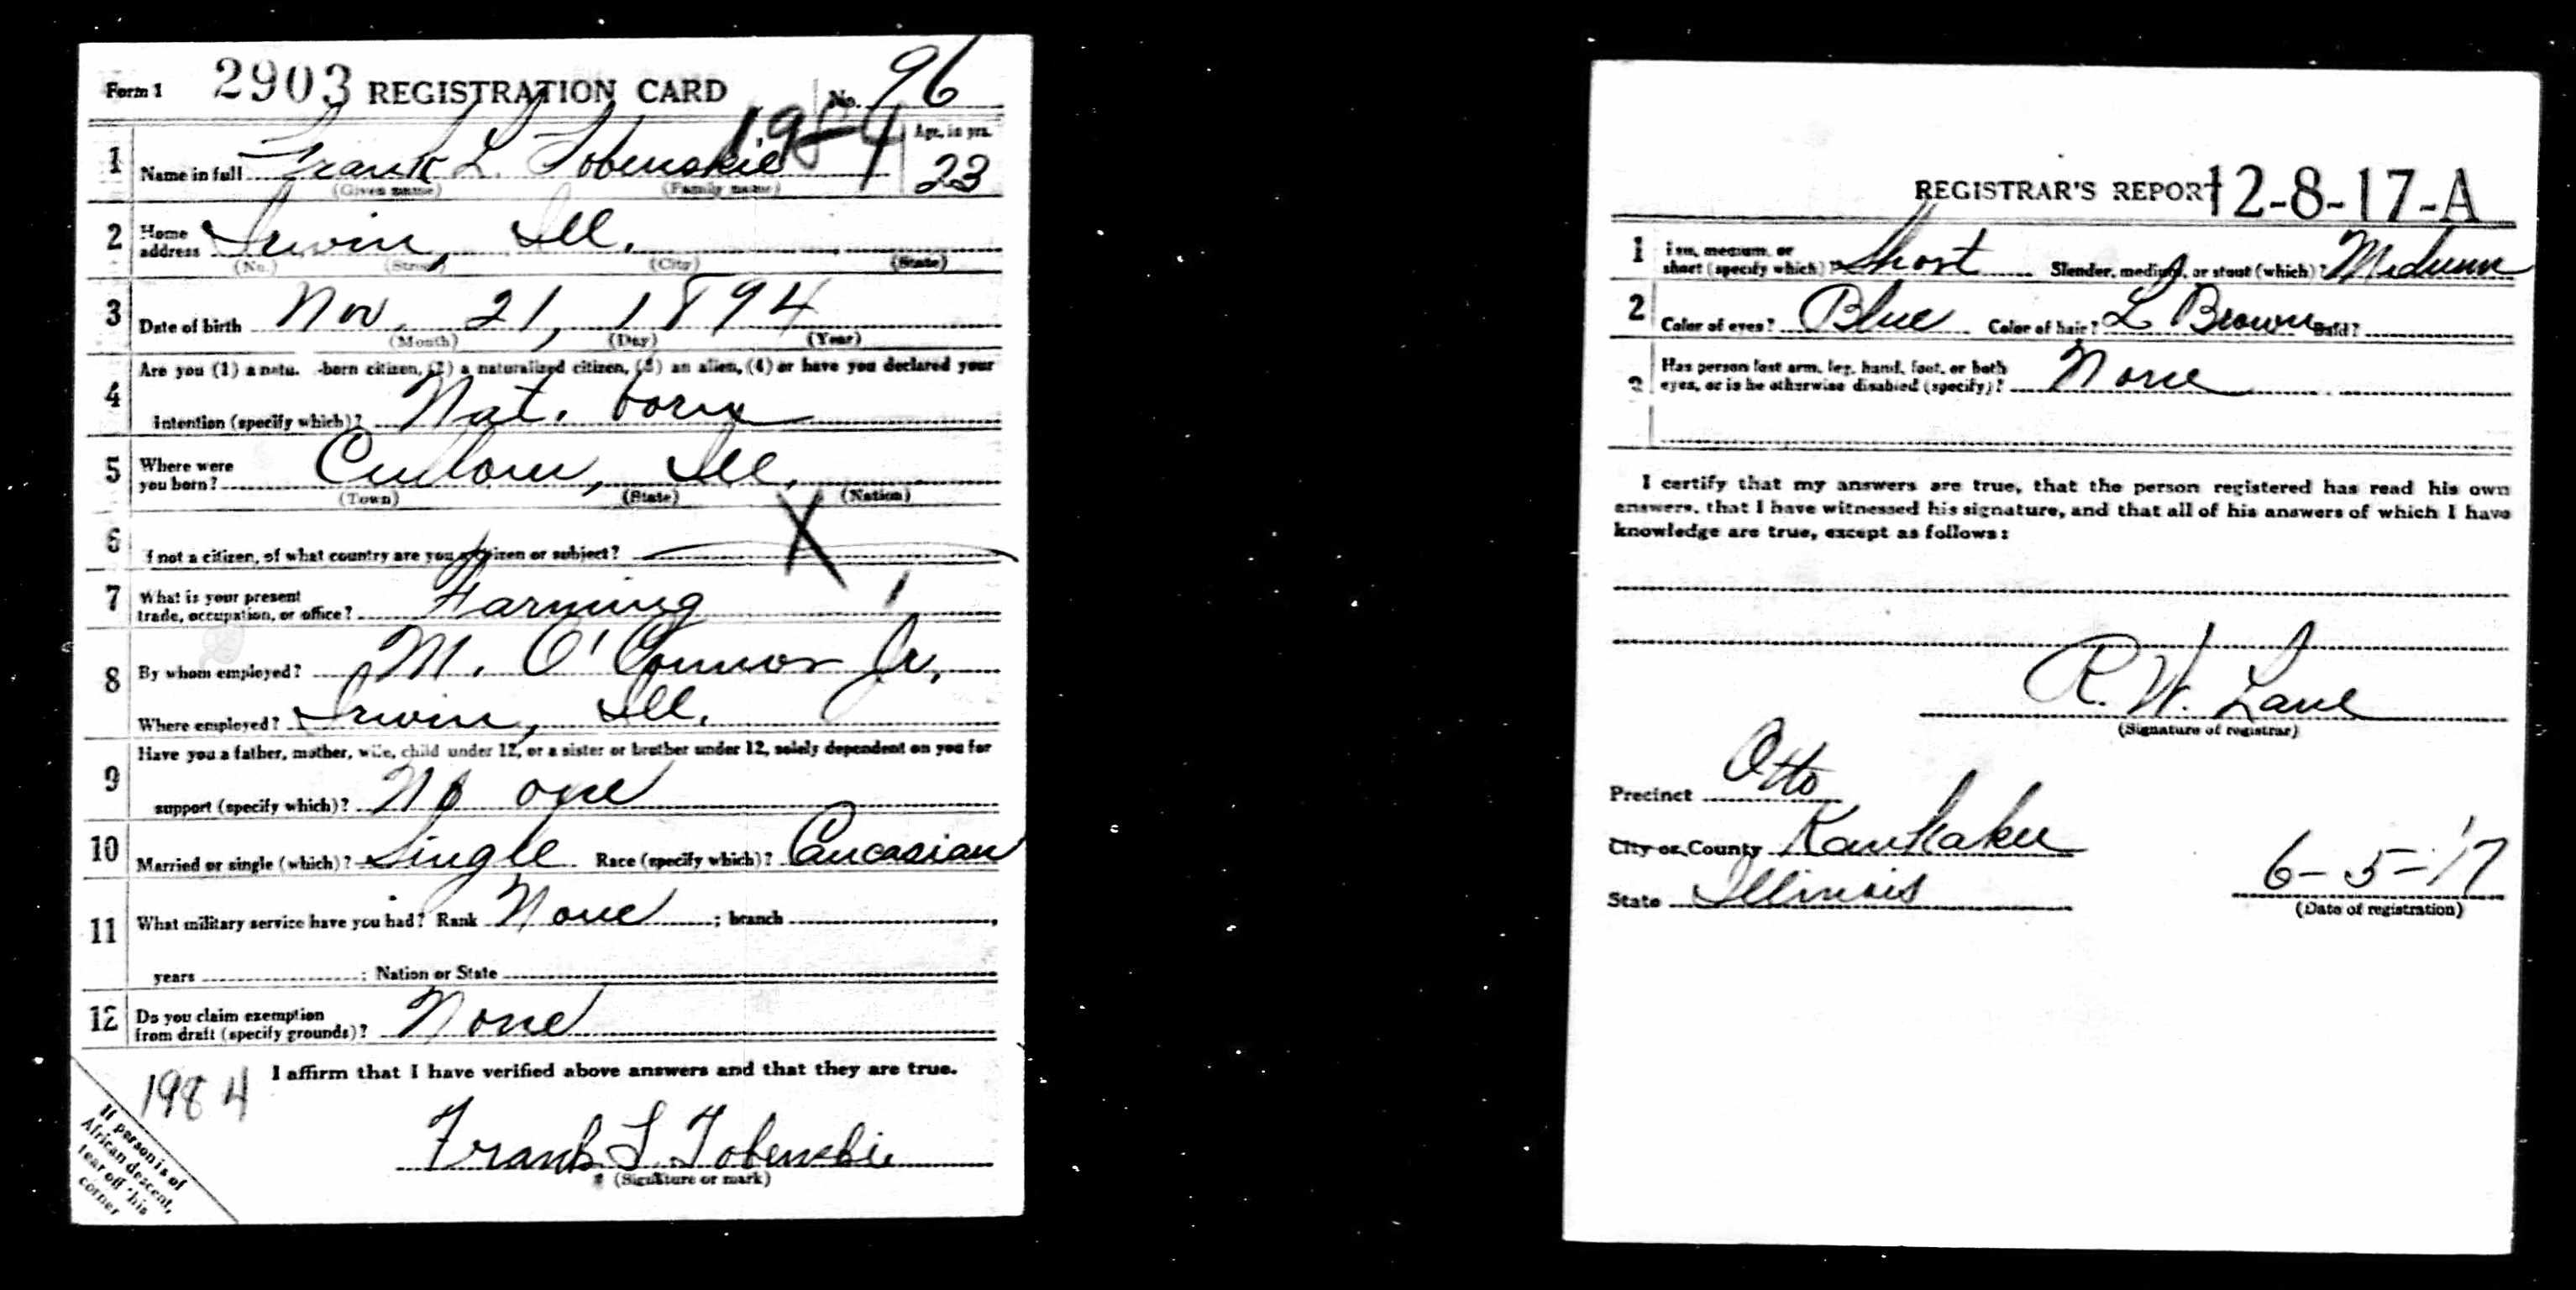 Form 1 2903 REGISTRATION CARD No. 96
1984
1 Name in full Frank L. Tobenskie Age, in yrs. 23
(Given name) (Family name)
2 Home address Irwin, Ill.
(No.) (Street) (City) (State)
3 Date of birth Nov. 21, 1894
(Month) (Day) (Year)
4 Are you (1) a natu. -born citizen, (2) a naturalized citizen, (3) an alien, (4) or have you declared your
intention (specify which)? Nat. born
5 Where were you born? Cullom, Ill.
(Town) (State) (Nation)
X
6 f not a citizen, of what country are you a citizen or subject?
7 What is your present trade, occupation, or office? Farming 1
8 By whom employed? M. O'Connor Jr.
Where employed? Irwin, Ill.
9 Have you a father, mother, wife, child under 12, or a sister or brother under 12, solely dependent on you for
support (specify which)? No one
10 Married or single (which)? Single Race (specify which)? Caucasian
11 What military service have you had? Rank None ; branch ,
years ; Nation or State
12 Do you claim exemption from draft (specify grounds)? None
I affirm that I have verified above answers and that they are true.
1984
Frank L Tobenskie
(Signature or mark)
If person is of
African descent,
tear off this
corner
REGISTRAR'S REPORT 12-8-17-A
1 medium, or short (specify which)? Short Slender, medium, or stout (which)? Medium
2 Color of eyes? Blue Color of hair? L Brown Bald?
3 Has person lost arm, leg, hand, foot, or both
eyes, or is he otherwise disabled (specify)? None
I certify that my answers are true, that the person registered has read his own
answers, that I have witnessed his signature, and that all of his answers of which I have
knowledge are true, except as follows:
R. W. Lane
(Signature of registrar)
Precinct Otto
City or County Kankakee
State Illinois
6-5-'17
(Date of registration)